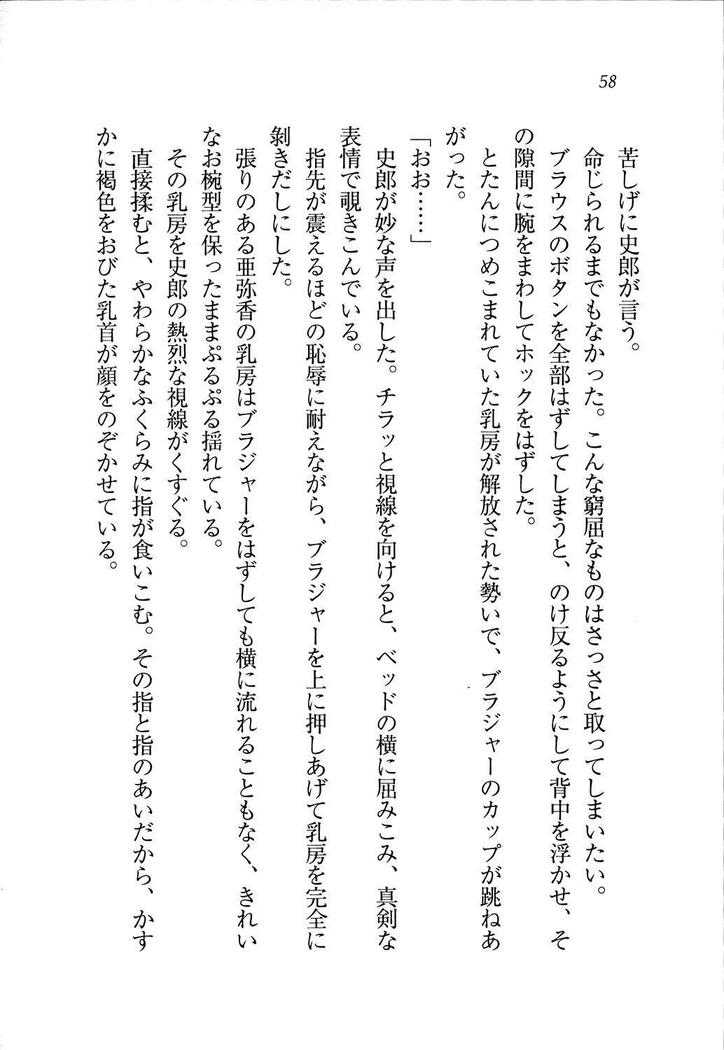 58
苦しげに史郎が言う。
命じられるまでもなかった。こんな窮屈なものはさっさと取ってしまいたい。
ブラウスのボタンを全部はずしてしまうと、のけ反るようにして背中を浮かせ、そ
の隙間に腕をまわしてホックをはずした。
とたんにつめこまれていた乳房が解放された勢いで、ブラジャーのカップが跳ねあ
がった。
「おお……」
史郎が妙な声を出した。チラッと視線を向けると、ベッドの横に屈みこみ、真剣な
表情で覗きこんでいる。
指先が震えるほどの恥辱に耐えながら、ブラジャーを上に押しあげて乳房を完全に
剝きだしにした。
張りのある亜弥香の乳房はブラジャーをはずしても横に流れることもなく、きれい
なお椀型を保ったままぷるぷる揺れている。
その乳房を史郎の熱烈な視線がくすぐる。
直接揉むと、やわらかなふくらみに指が食いこむ。その指と指のあいだから、かす
かに褐色をおびた乳首が顔をのぞかせている。